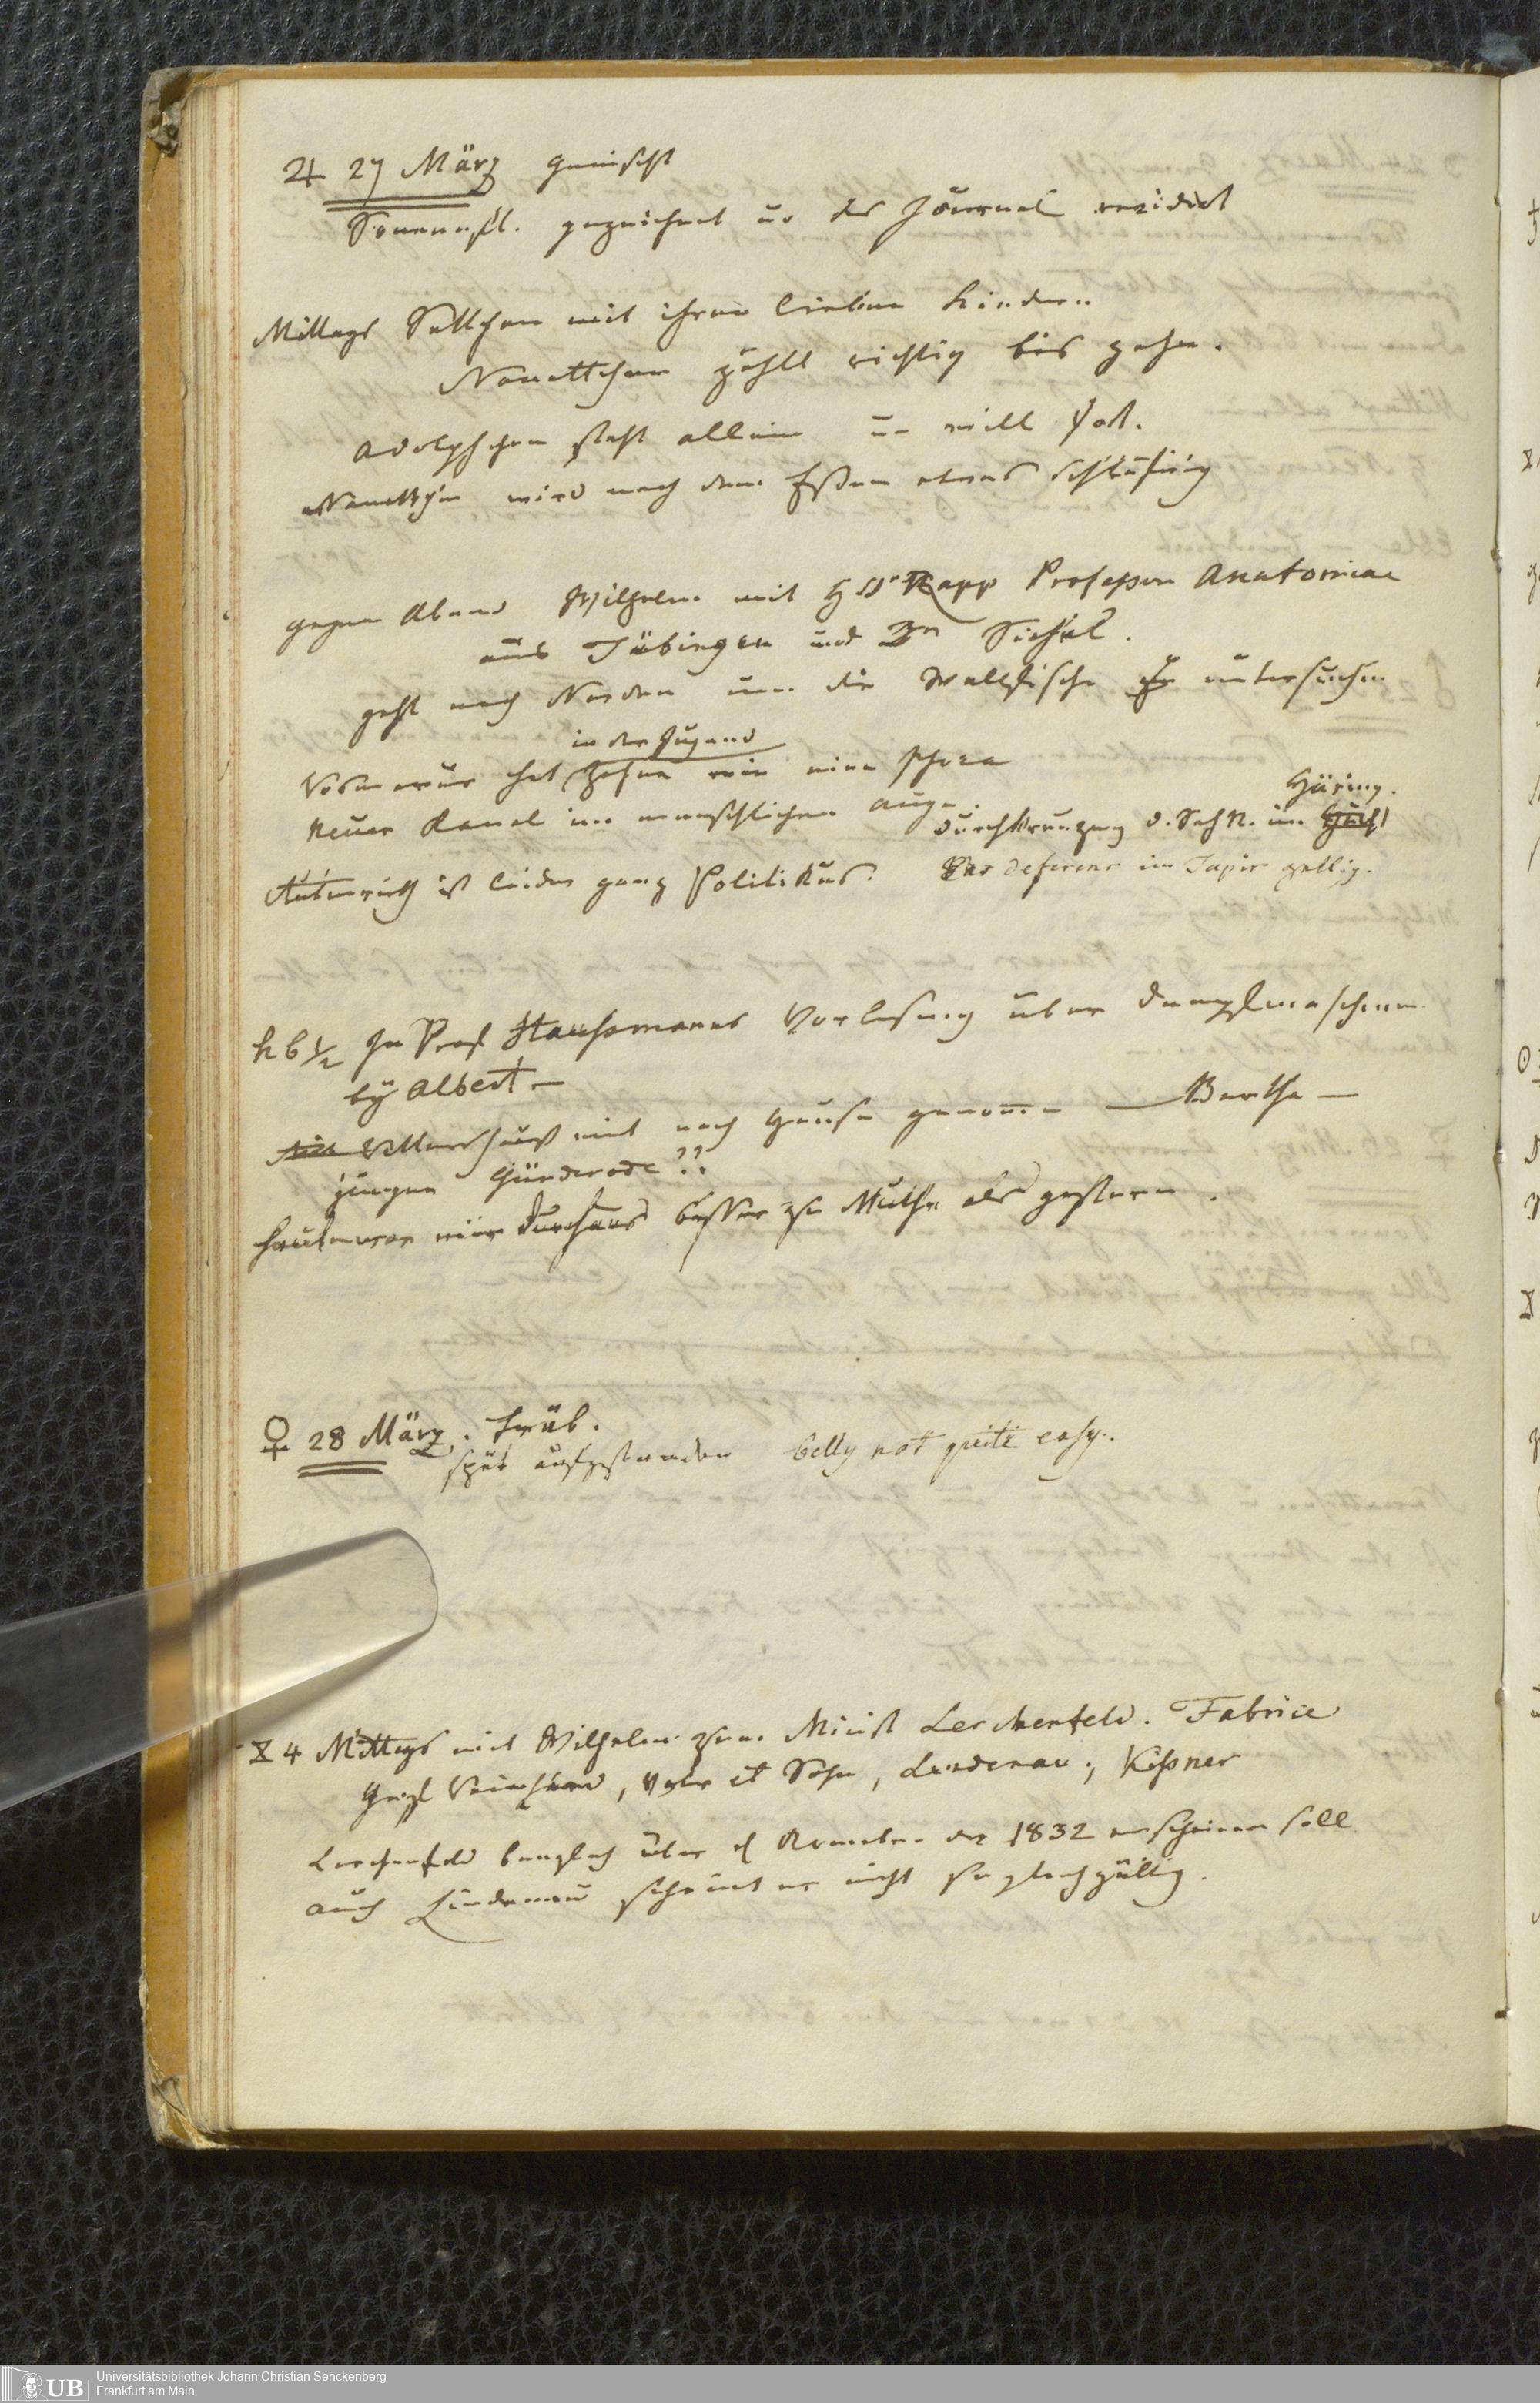 ♃ 27 März gemischt
Sonnenfl. gezeichnet u. das Journal revidirt
Mittags Settchen mit ihren lieben Kindern
Nanettchen zählt richtig bis zehn.
Adolphchen steht allein u. will fort.
Nanettchen wird nach dem Essen etwas schläfrig
gegen Abend Wilhelm mit H Dr Rapp Professor Anatomiae
aus Tübingen und Dr Sichel.
geht nach Norden um die Wallfische zu untersuchen
in der Jugend
hat Zähne wie eine
Neuer Kanal im menschlichen Auge.
Häring.
Durchkreuzung d. SehN. im
Autenrieth ist leider ganz Politikus.
Vas deferens im Tapir zellig.
h 6 1/2 In Prof Hausmanns Vorlesung über Dampfmaschinen
by Albert –
mit nach Hause genommen — Bertha —
jungen Günderode??
heut war mir durchaus besser zu Muthe als gestern.
♀ 28 März. Trüb.
spät aufgestanden belly not quite easy.
4 Mittags mit Wilhelm zum Minist Lerchenfeld. Fabrice
Graf Reinhard, Vater et Sohn, Lindenau, Kissner
Lerchenfeld besorglich über d Kometen der 1832 erscheinen soll
auch Lindenau scheint er nicht so gleichgültig.
Universitätsbibliothek Johann Christian Senckenberg
Frankfurt am Main
UB